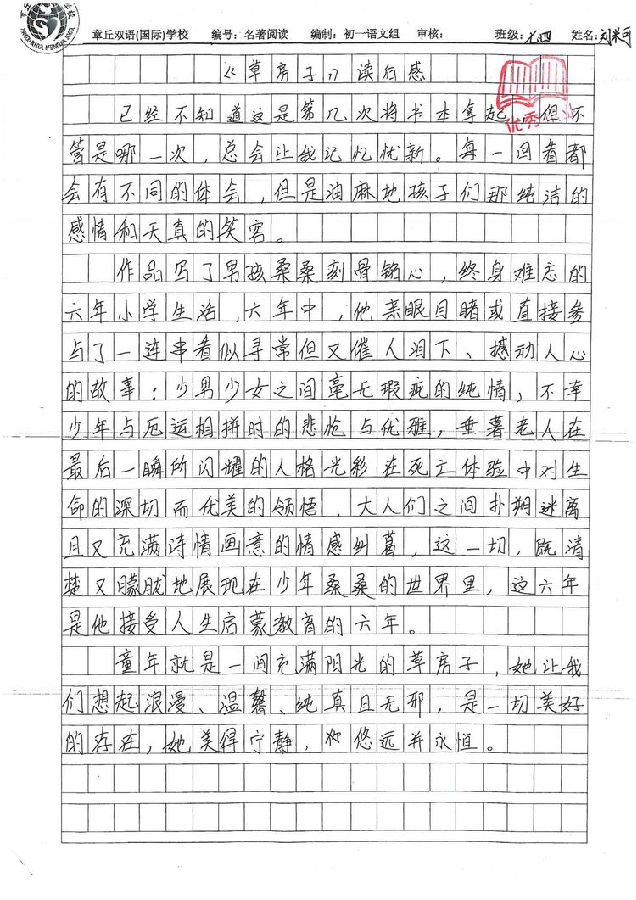 章丘双语(国际)学校 编号:名著阅读 编制:初一语文组 审核: 班级: 姓名:
《草房子》读后感
优秀
已经不知道这是第几次将书本拿起,但不
管是哪一次,总会让我记忆忧新。每一回看都
会有不同的体会,但是油麻地孩子们那纯洁的
感情和天真的笑容。
作品写了男孩桑桑刻骨铭心,终身难忘的
六年小学生活,六年中,他亲眼目睹或直接参
与了一连串看似寻常但又催人泪下、撼动人心
的故事:少男少女之间毫无瑕疵的纯情,不幸
少年与厄运相拼时的悲怆与优雅,垂暮老人在
最后一瞬所闪耀的人格光彩在死亡体验中对生
命的深切而优美的领悟,大人们之间扑朔迷离
且又充满诗情画意的情感纠葛,这一切,既清
楚又朦胧地展现在少年桑桑的世界里,这六年
是他接受人生启蒙教育的六年。
童年就是一间充满阳光的草房子,她让我
们想起浪漫、温馨、纯真且无邪,是一切美好
的存在,她美得宁静,悠远并永恒。